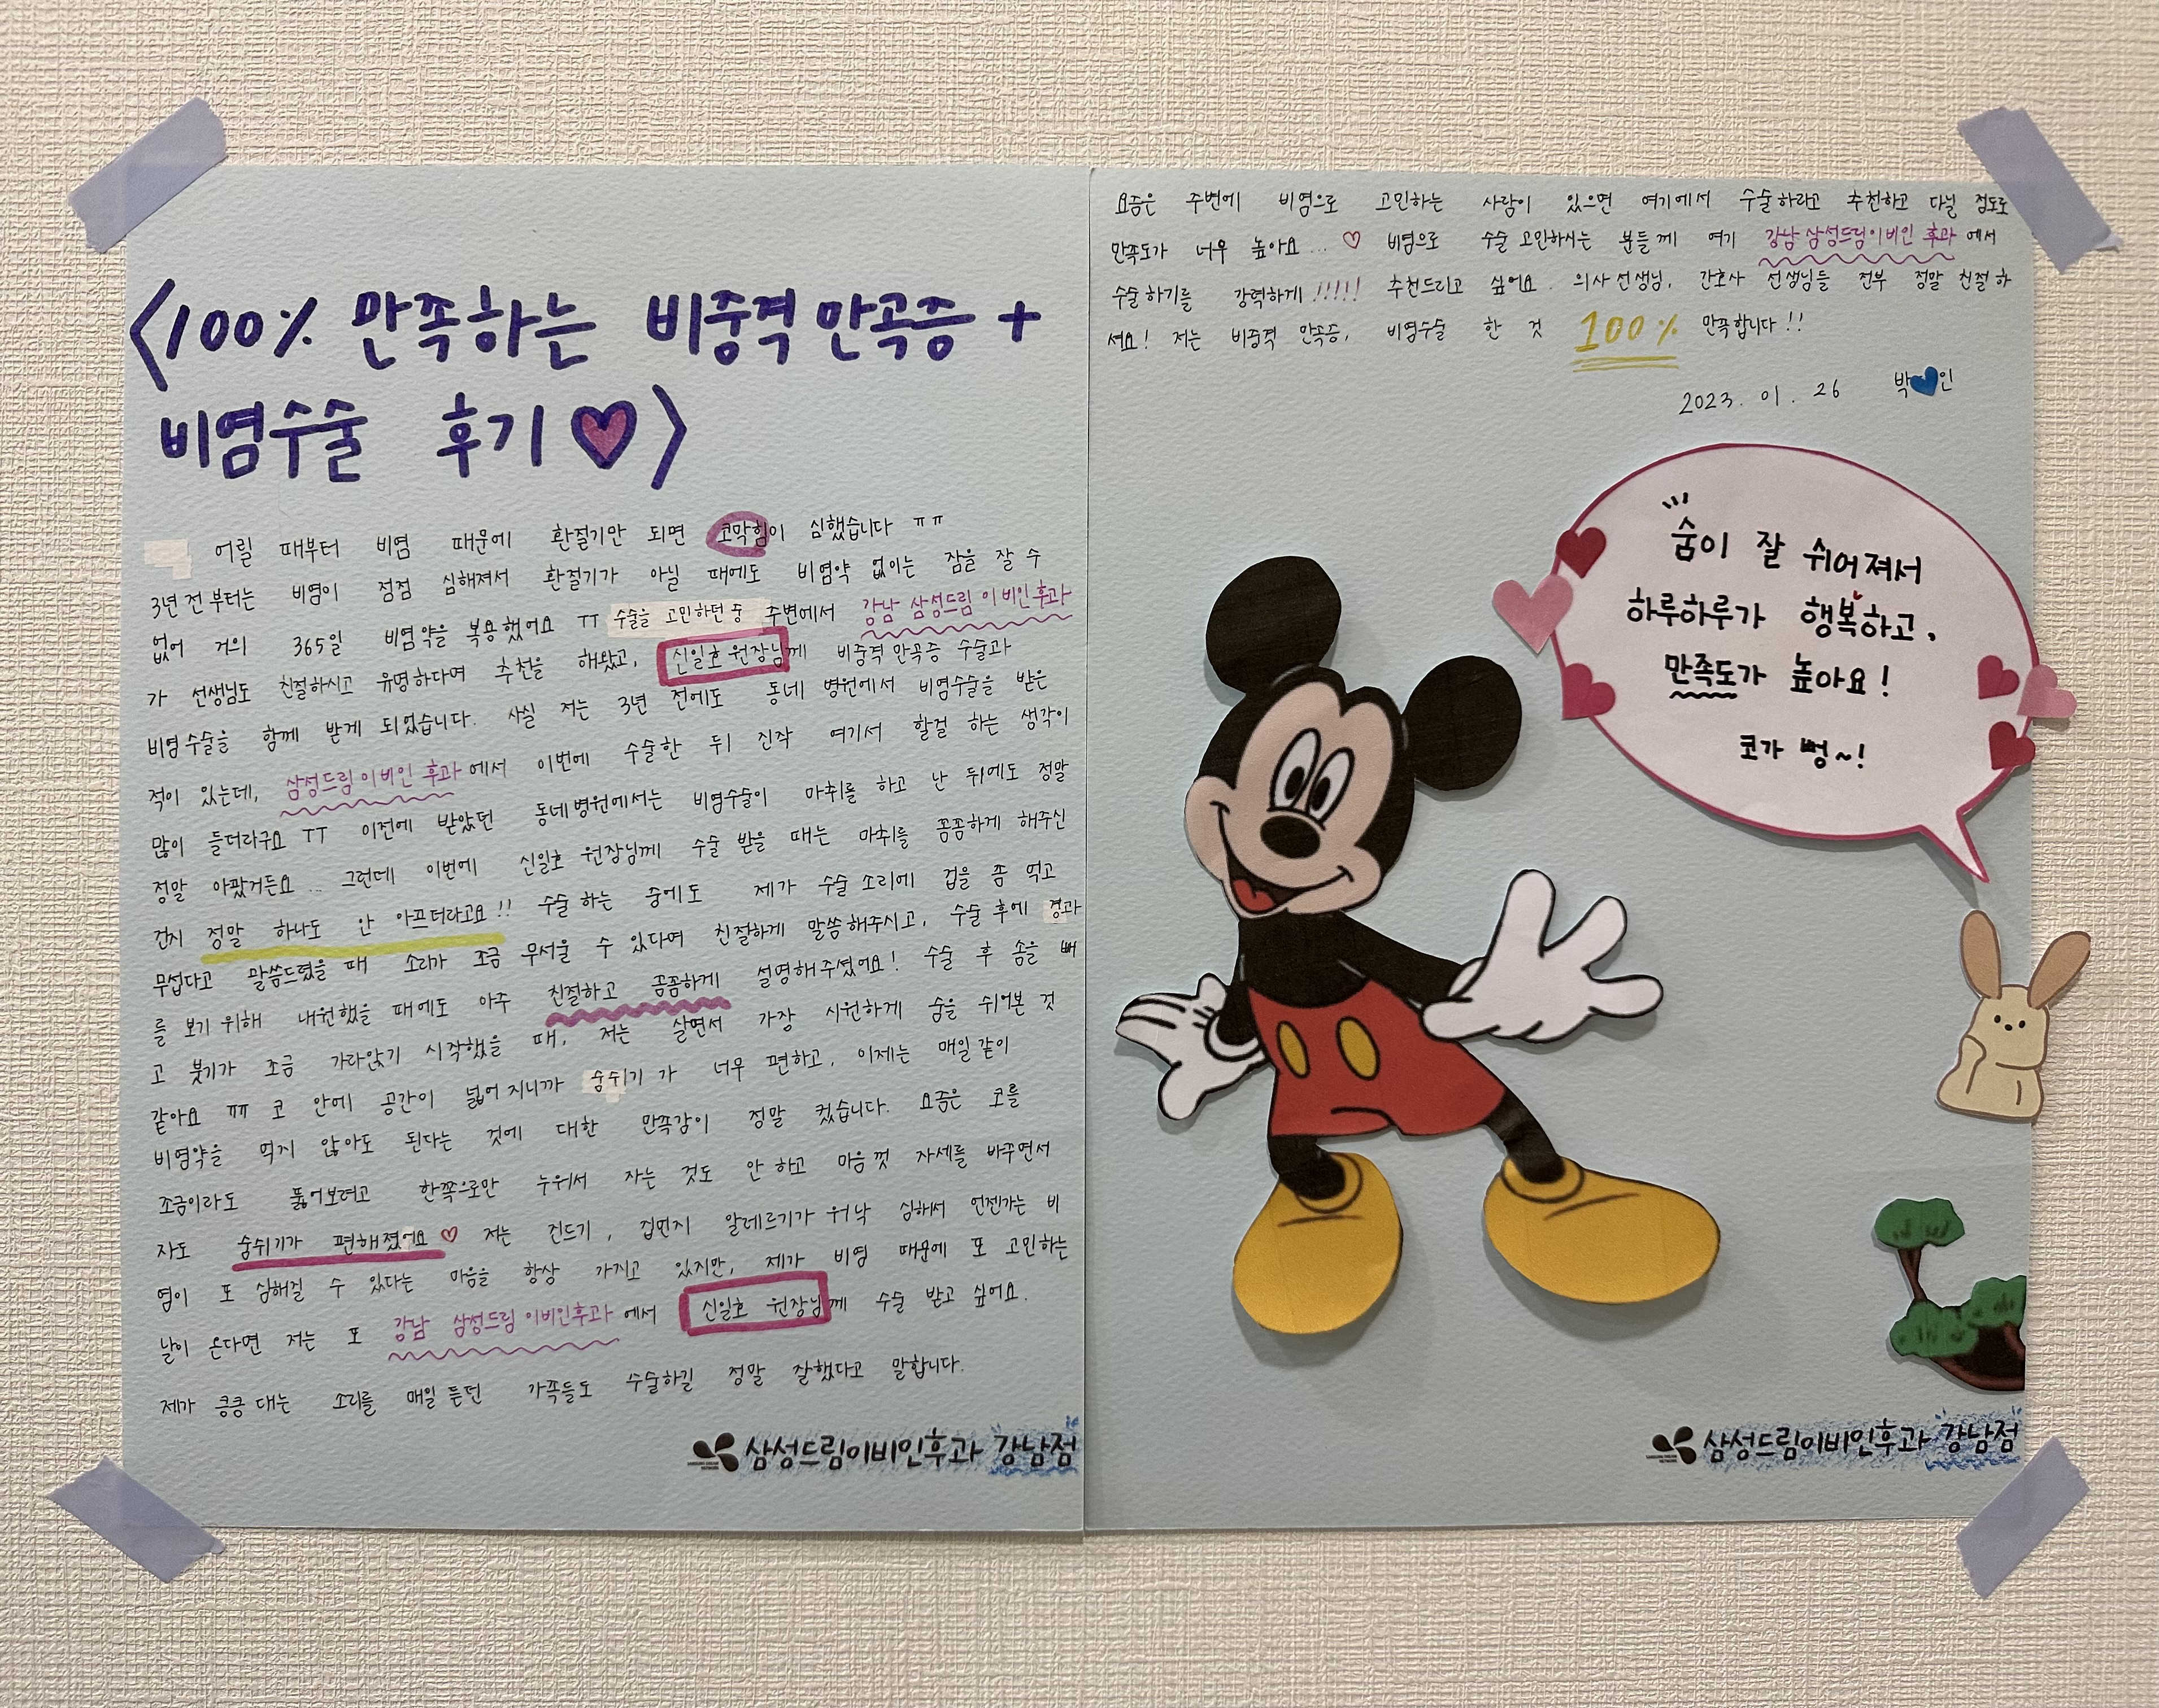 <100% 만족하는 비중격 만곡증 +
비염수술 후기♡>
어릴 때부터 비염 때문에 환절기만 되면 코막힘이 심했습니다 ㅠㅠ
3년 전부터는 비염이 점점 심해져서 환절기가 아닐 때에도 비염약 없이는 잠을 잘 수
없어 거의 365일 비염약을 복용했어요 ㅜㅜ 수술을 고민하던 중 주변에서 강남 삼성드림이비인후과
가 선생님도 친절하시고 유명하다며 추천을 해왔고, 신일호 원장님께 비중격만곡증 수술과
비염수술을 함께 받게 되었습니다. 사실 저는 3년 전에도 동네 병원에서 비염수술을 받은
적이 있는데, 삼성드림이비인후과에서 이번에 수술한 뒤 진작 여기서 할걸 하는 생각이
많이 들더라구요 ㅜㅜ 이전에 받았던 동네병원에서는 비염수술이 마취를 하고 난 뒤에도 정말
정말 아팠거든요... 그런데 이번에 신일호 원장님께 수술 받을 때는 마취를 꼼꼼하게 해주신
건지 정말 하나도 안 아프더라고요!! 수술 하는 중에도 제가 수술 소리에 겁을 좀 먹고
무섭다고 말씀드렸을 때 소리가 조금 무서울 수 있다며 친절하게 말씀해주시고, 수술 후에 경과
를 보기 위해 내원했을 때에도 아주 친절하고 꼼꼼하게 설명해주셨어요! 수술 후 솜을 빼
고 붓기가 조금 가라앉기 시작했을 때, 저는 살면서 가장 시원하게 숨을 쉬어본 것
같아요 ㅠㅠ 코 안에 공간이 넓어지니까 숨쉬기가 너무 편하고, 이제는 매일같이
비염약을 먹지 않아도 된다는 것에 대한 만족감이 정말 컸습니다. 요즘은 코를
조금이라도 뚫어보려고 한쪽으로만 누워서 자는 것도 안 하고 마음껏 자세를 바꾸면서
자도 숨쉬기가 편해졌어요♡ 저는 진드기, 집먼지 알레르기가 워낙 심해서 언젠가는 비
염이 또 심해질 수 있다는 마음을 항상 가지고 있지만, 제가 비염 때문에 또 고민하는
날이 온다면 저는 또 강남 삼성드림이비인후과에서 신일호 원장님께 수술 받고 싶어요.
제가 킁킁 대는 소리를 매일 듣던 가족들도 수술하길 정말 잘했다고 말합니다.
삼성드림이비인후과 강남점
요즘은 주변에 비염으로 고민하는 사람이 있으면 여기에서 수술하라고 추천하고 다닐 정도로
만족도가 너무 높아요...♡ 비염으로 수술 고민하시는 분들께 여기 강남 삼성드림이비인후과에서
수술하기를 강력하게!!!!! 추천드리고 싶어요. 의사선생님, 간호사 선생님들 전부 정말 친절하
셔요! 저는 비중격 만곡증, 비염수술 한 것 100% 만족합니다!!
2023. 01. 26 박💙인
숨이 잘 쉬어져서
하루하루가 행복하고,
만족도가 높아요!
코가 뻥~!
삼성드림이비인후과 강남점